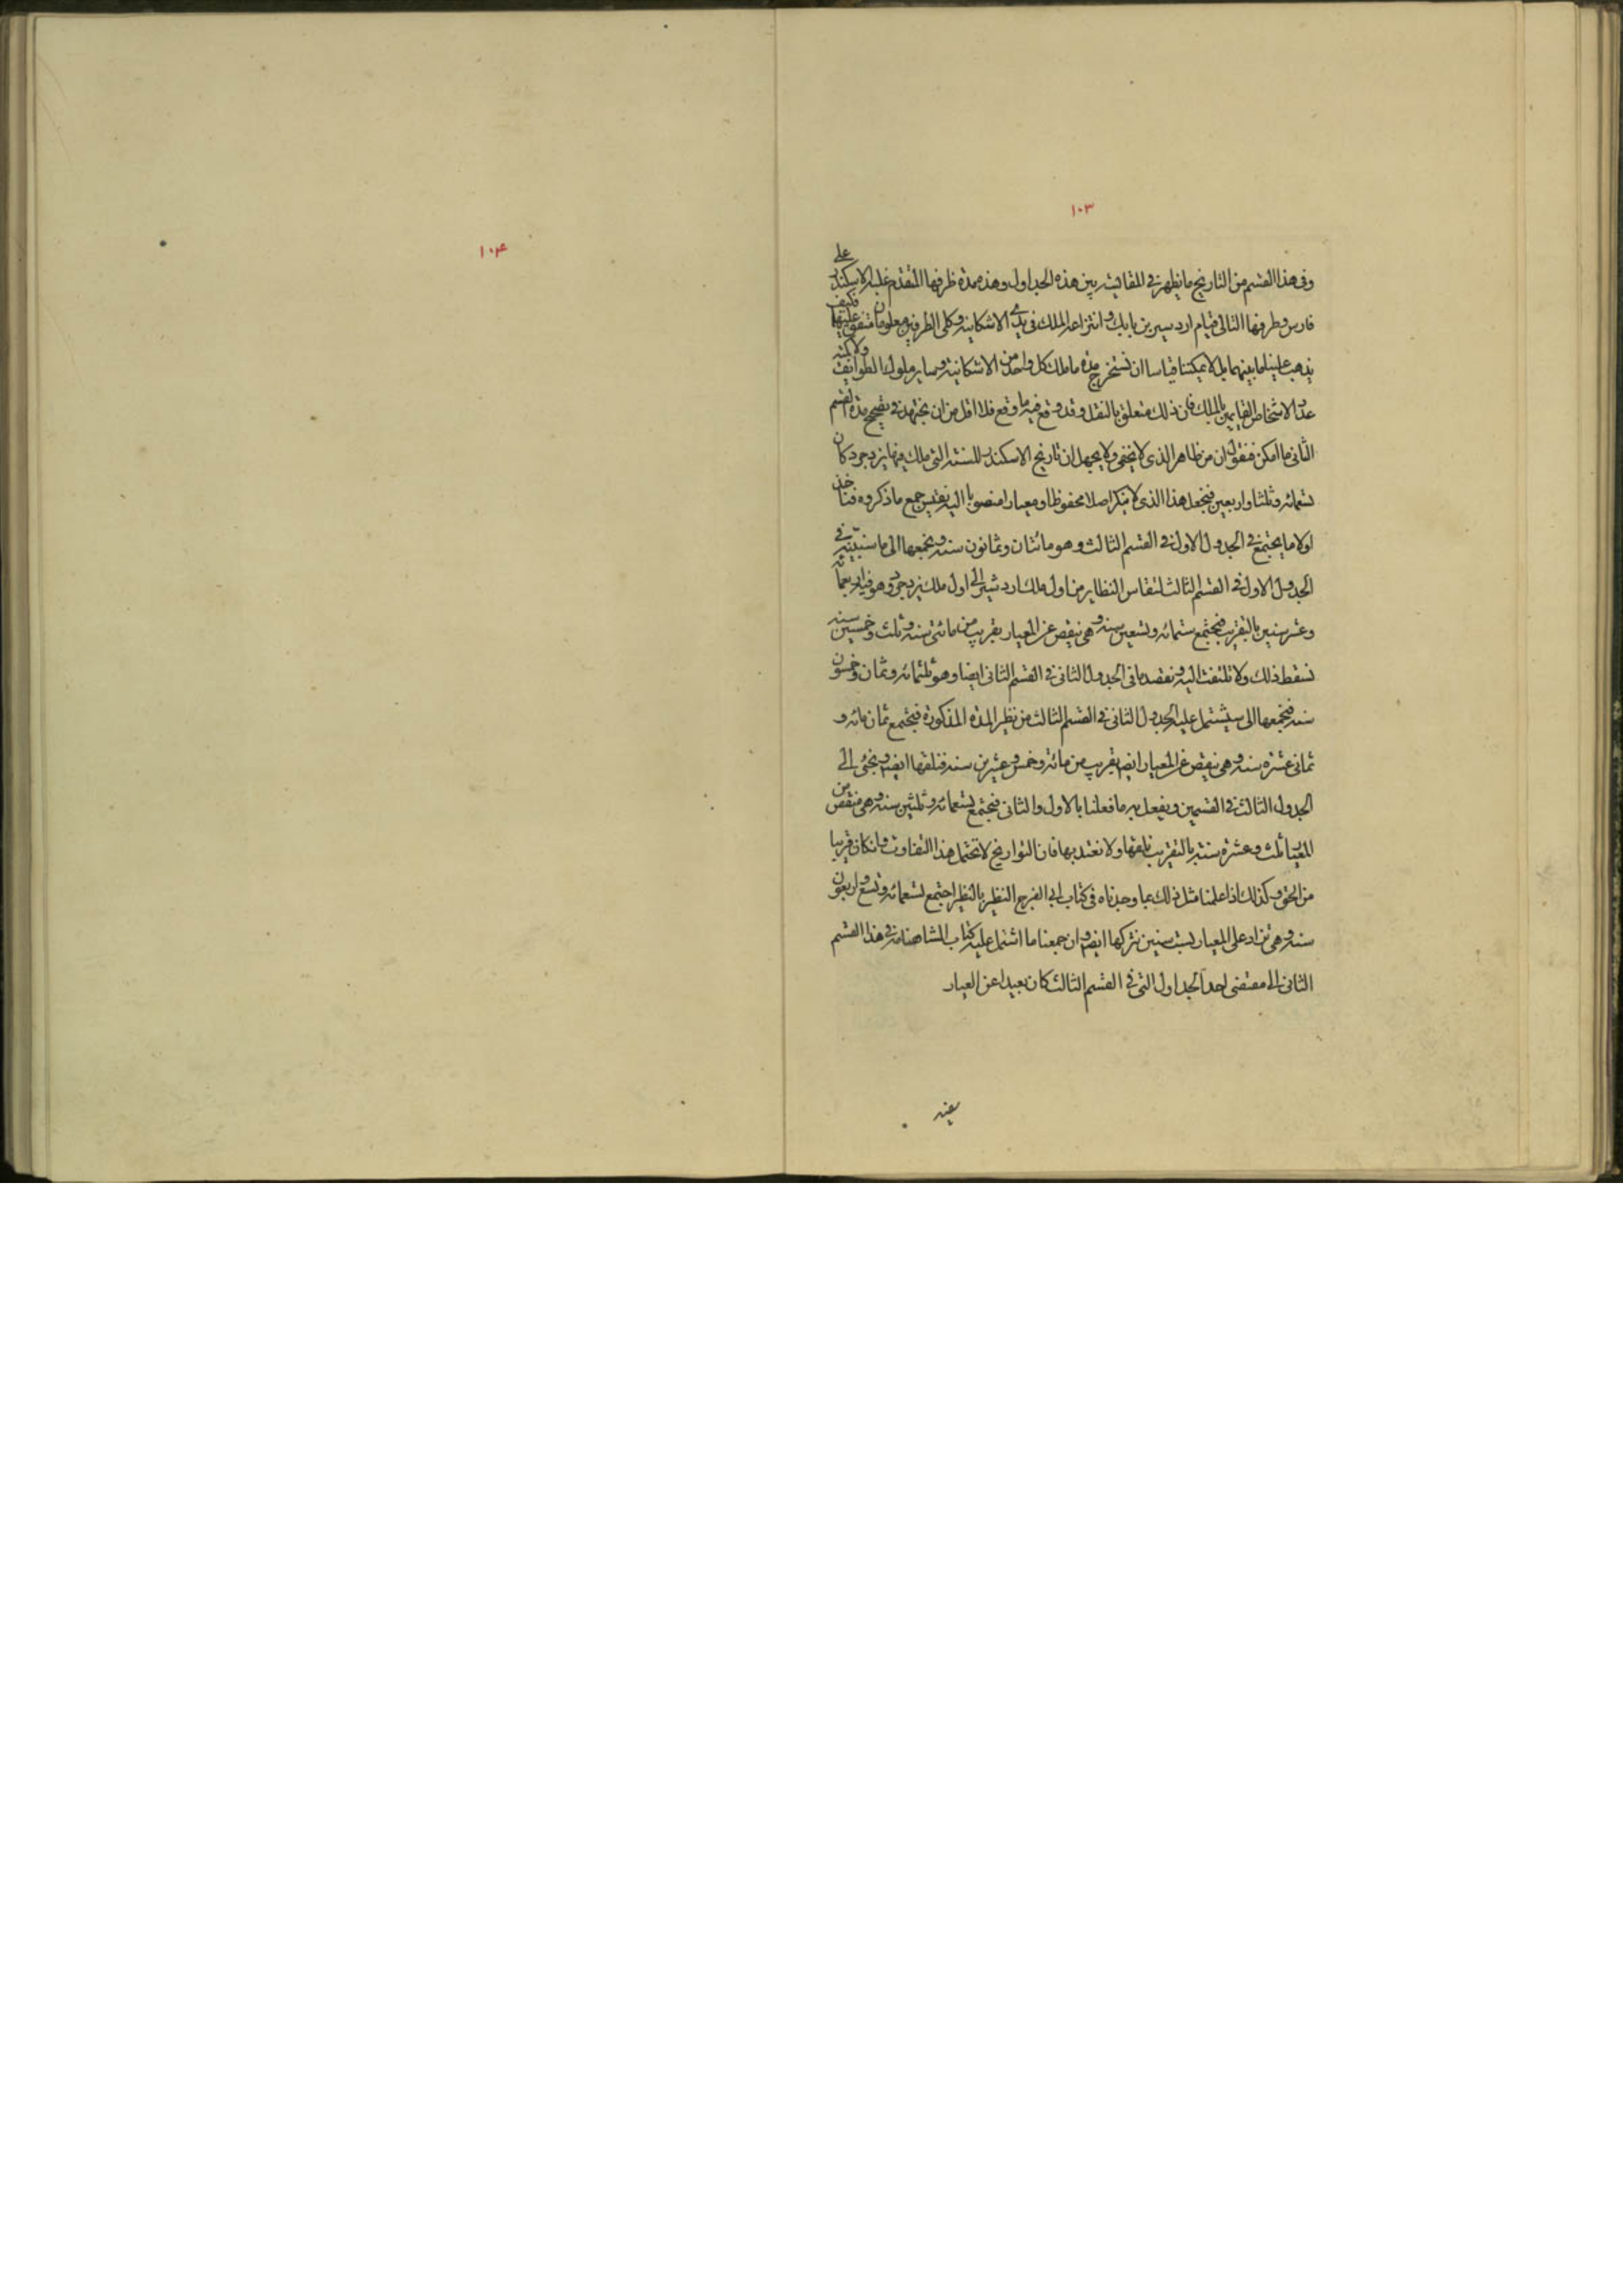 ١٠٣
وفى هذا القسم من التاريخ ما يظهر فى المقايسة بين هذه الجداول وهذه مدة طرفها المتقدم غلبة الاسكندر على
فارس وطرفها التالى قيام اردشير بن بابك وانتزاعه الملك فى يدى الاشكانية وكلى الطرفين معلومان متفق عليهما فكيف
يذهب علينا ما بينهما بل لا يمكننا قياسا ان نستخرج مدة ما ملك كل واحد من الاشكانية وساير ملوك الطوايف ولا كمية
عدد الاشخاص القايمين بالملك فان ذلك متعلق بالنقل وقد وقع فيه ما وقع فلا اقل من ان نجتهد فى تصحيح مدة القسم
الثانى ما امكن فنقول ان من ظاهر الذى لا يخفى ولا يجهل ان تاريخ الاسكندر للسنة التى ملك فيها يزدجرد كان
تسعمائه وثلثا واربعين فنجعل هذا الذى لا ينكر اصلا محفوظا ومعيارا منصوبا اليه نقيس جمع ما ذكروه فناخذ
اولا ما يجتمع فى الجدول الاول فى القسم الثالث وهو مائتان وثمانون سنه ونجمعها الى ما سنبينه فى
الجدول الاول فى القسم الثالث لنقاس النظاير من اول ملك اردشير الى اول ملك يزدجرد وهو اربعمائه
وعشر سنين بالتقريب فيجتمع ستمائه وتسعين سنه وهى تنقص عن المعيار بقريب من مائتى سنه وثلث وخمسين سنه
نسقط ذلك ولا نلتفت اليه ونقصد ما فى الجدول الثانى فى القسم الثانى ايضا وهو ثلثمائه وثمان وخمسون
سنه فنجمعها الى سيشتمل عليه الجدول الثانى فى القسم الثالث من نظير المدة المذكورة فيجتمع ثمان مائه و
ثمانى عشرة سنه وهى تنقص عن المعيار ايضا بقريب من مائه وخمس وعشرين سنه فنلقها ايضا ونجئ الى
الجدول الثالث فى القسمين ويفعل به ما فعلنا بالاول والثانى فيجتمع تسعمائه وثلثين سنه وهى تنقص من
المعيار ثلث وعشرة سنة بالتقريب نلقها ولا نعتد بها فان التواريخ لا تحتمل هذا التفاوت وانكان قريبا
من الحق وكذلك اذا علمنا مثل ذلك بما وجدناه فى كتاب ابى الفرج النظير بالنظير اجتمع تسعمائه وتسع واربعون
سنه وهى تزاد على المعيار بست سنين نتركها ايضا وان جمعنا ما اشتمل عليه كتاب الشاهنامه فى هذا القسم
الثانى الى مقتضى احد الجداول التى فى القسم الثالث كان بعيدا عن العيار
١٠٤